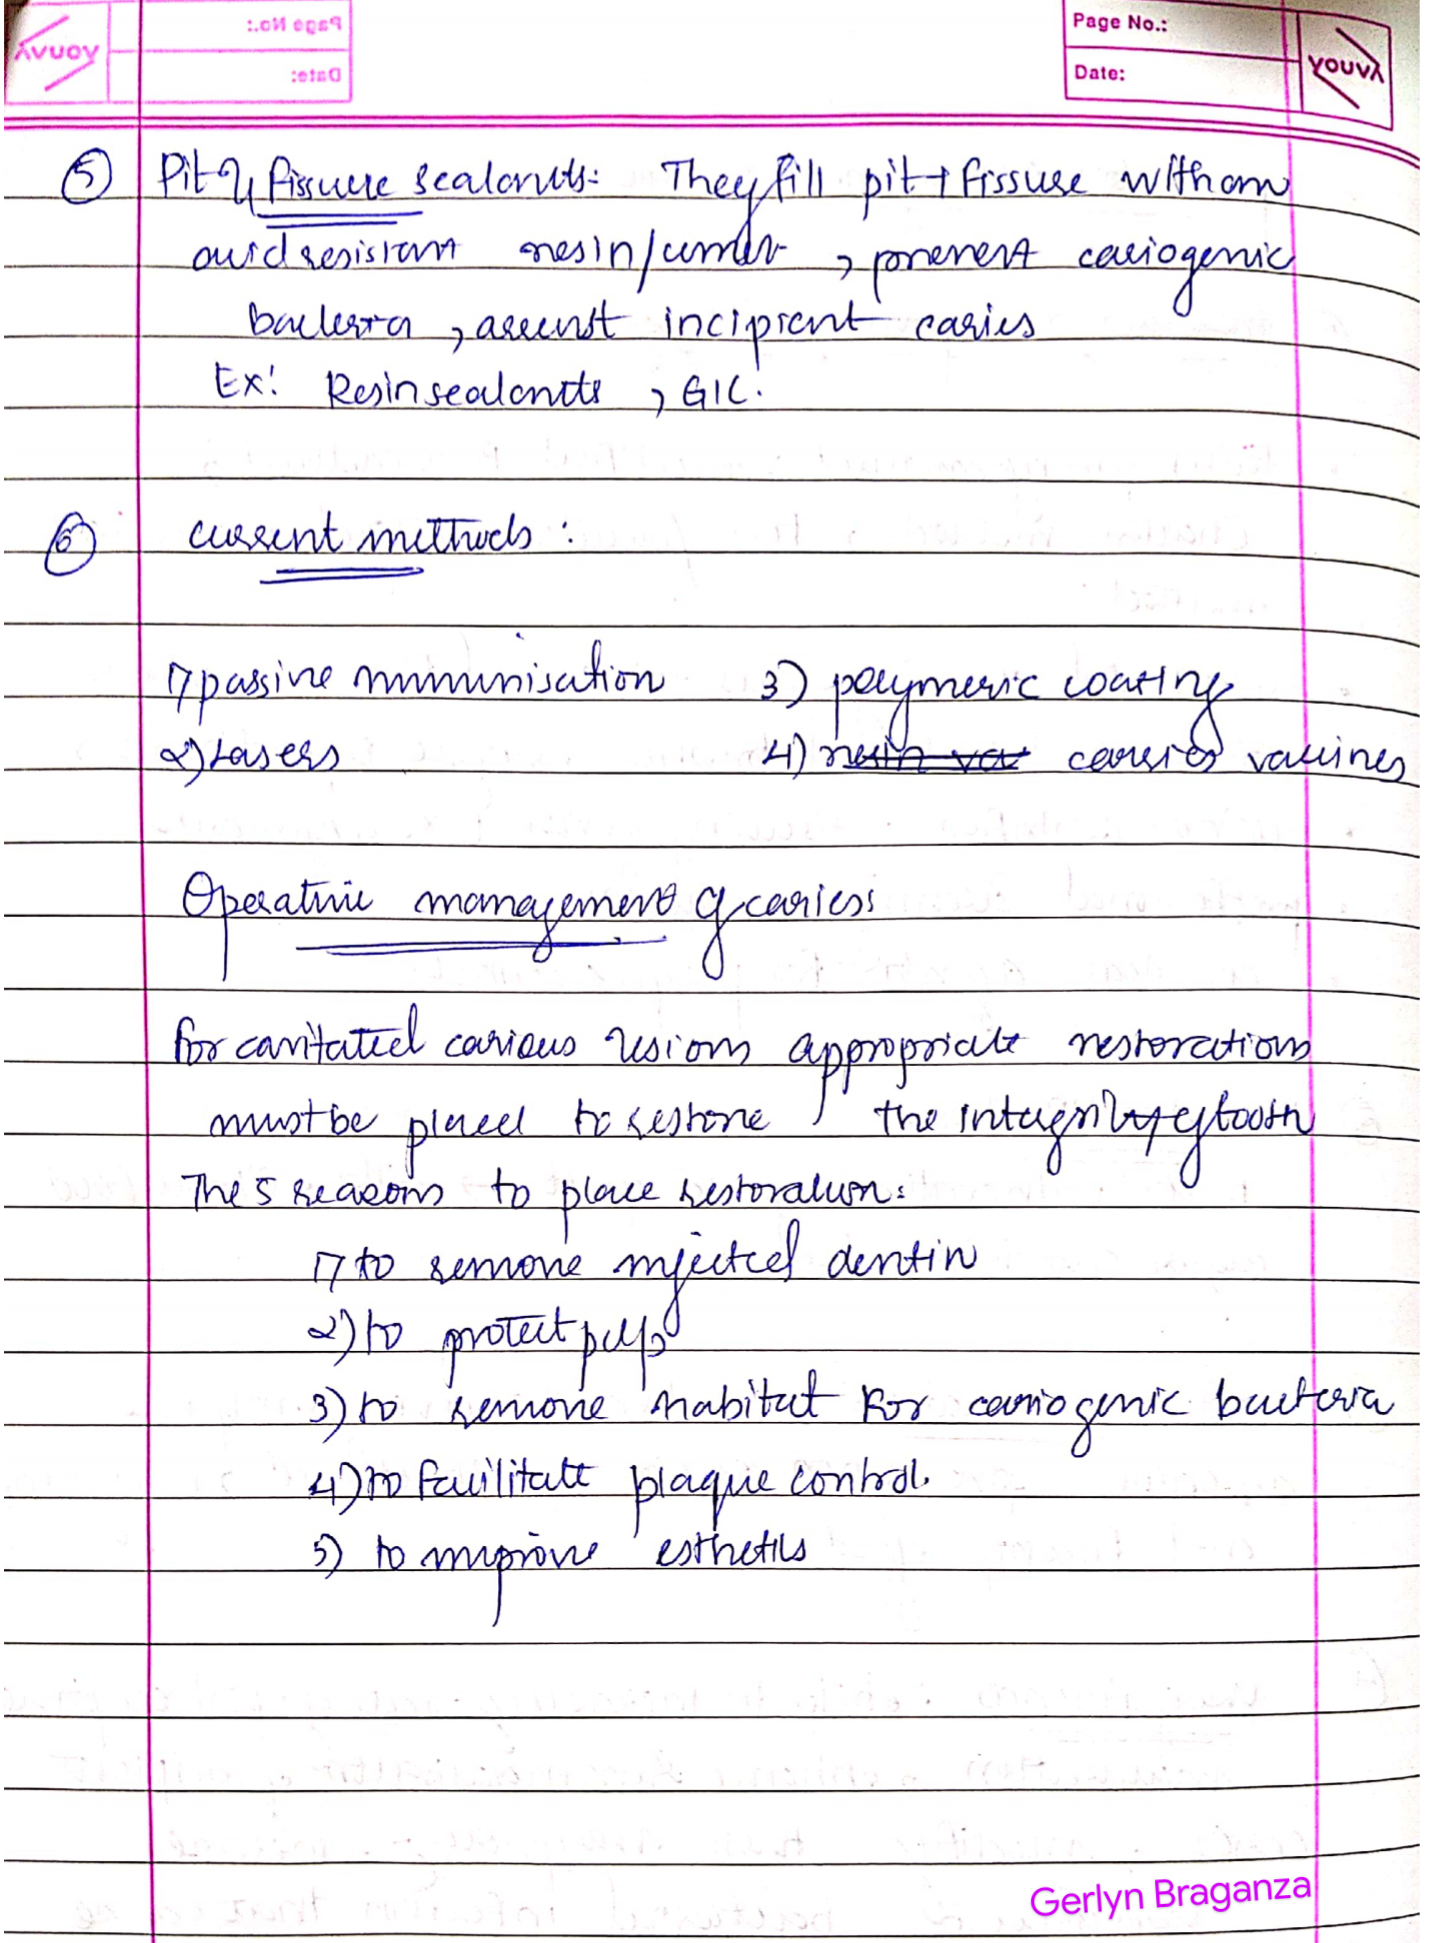 Page No.:
Date:
Youva
⑤ Pit & fissure sealants: They fill pit + fissure with an
acid resistant resin/cement, prevent cariogenic
bacteria, arrest incipient caries
Ex: Resin sealants, GIC.
⑥ current methods:
1) passive immunisation 3) polymeric coating
2) Lasers 4) caries vaccines
Operative management of caries:
for cavitated carious lesions appropriate restorations
must be placed to restore the integrity of tooth
The 5 reasons to place restoration:
1) to remove infected dentin
2) to protect pulp
3) to remove habitat for cariogenic bacteria
4) to facilitate plaque control.
5) to improve esthetics
Gerlyn Braganza